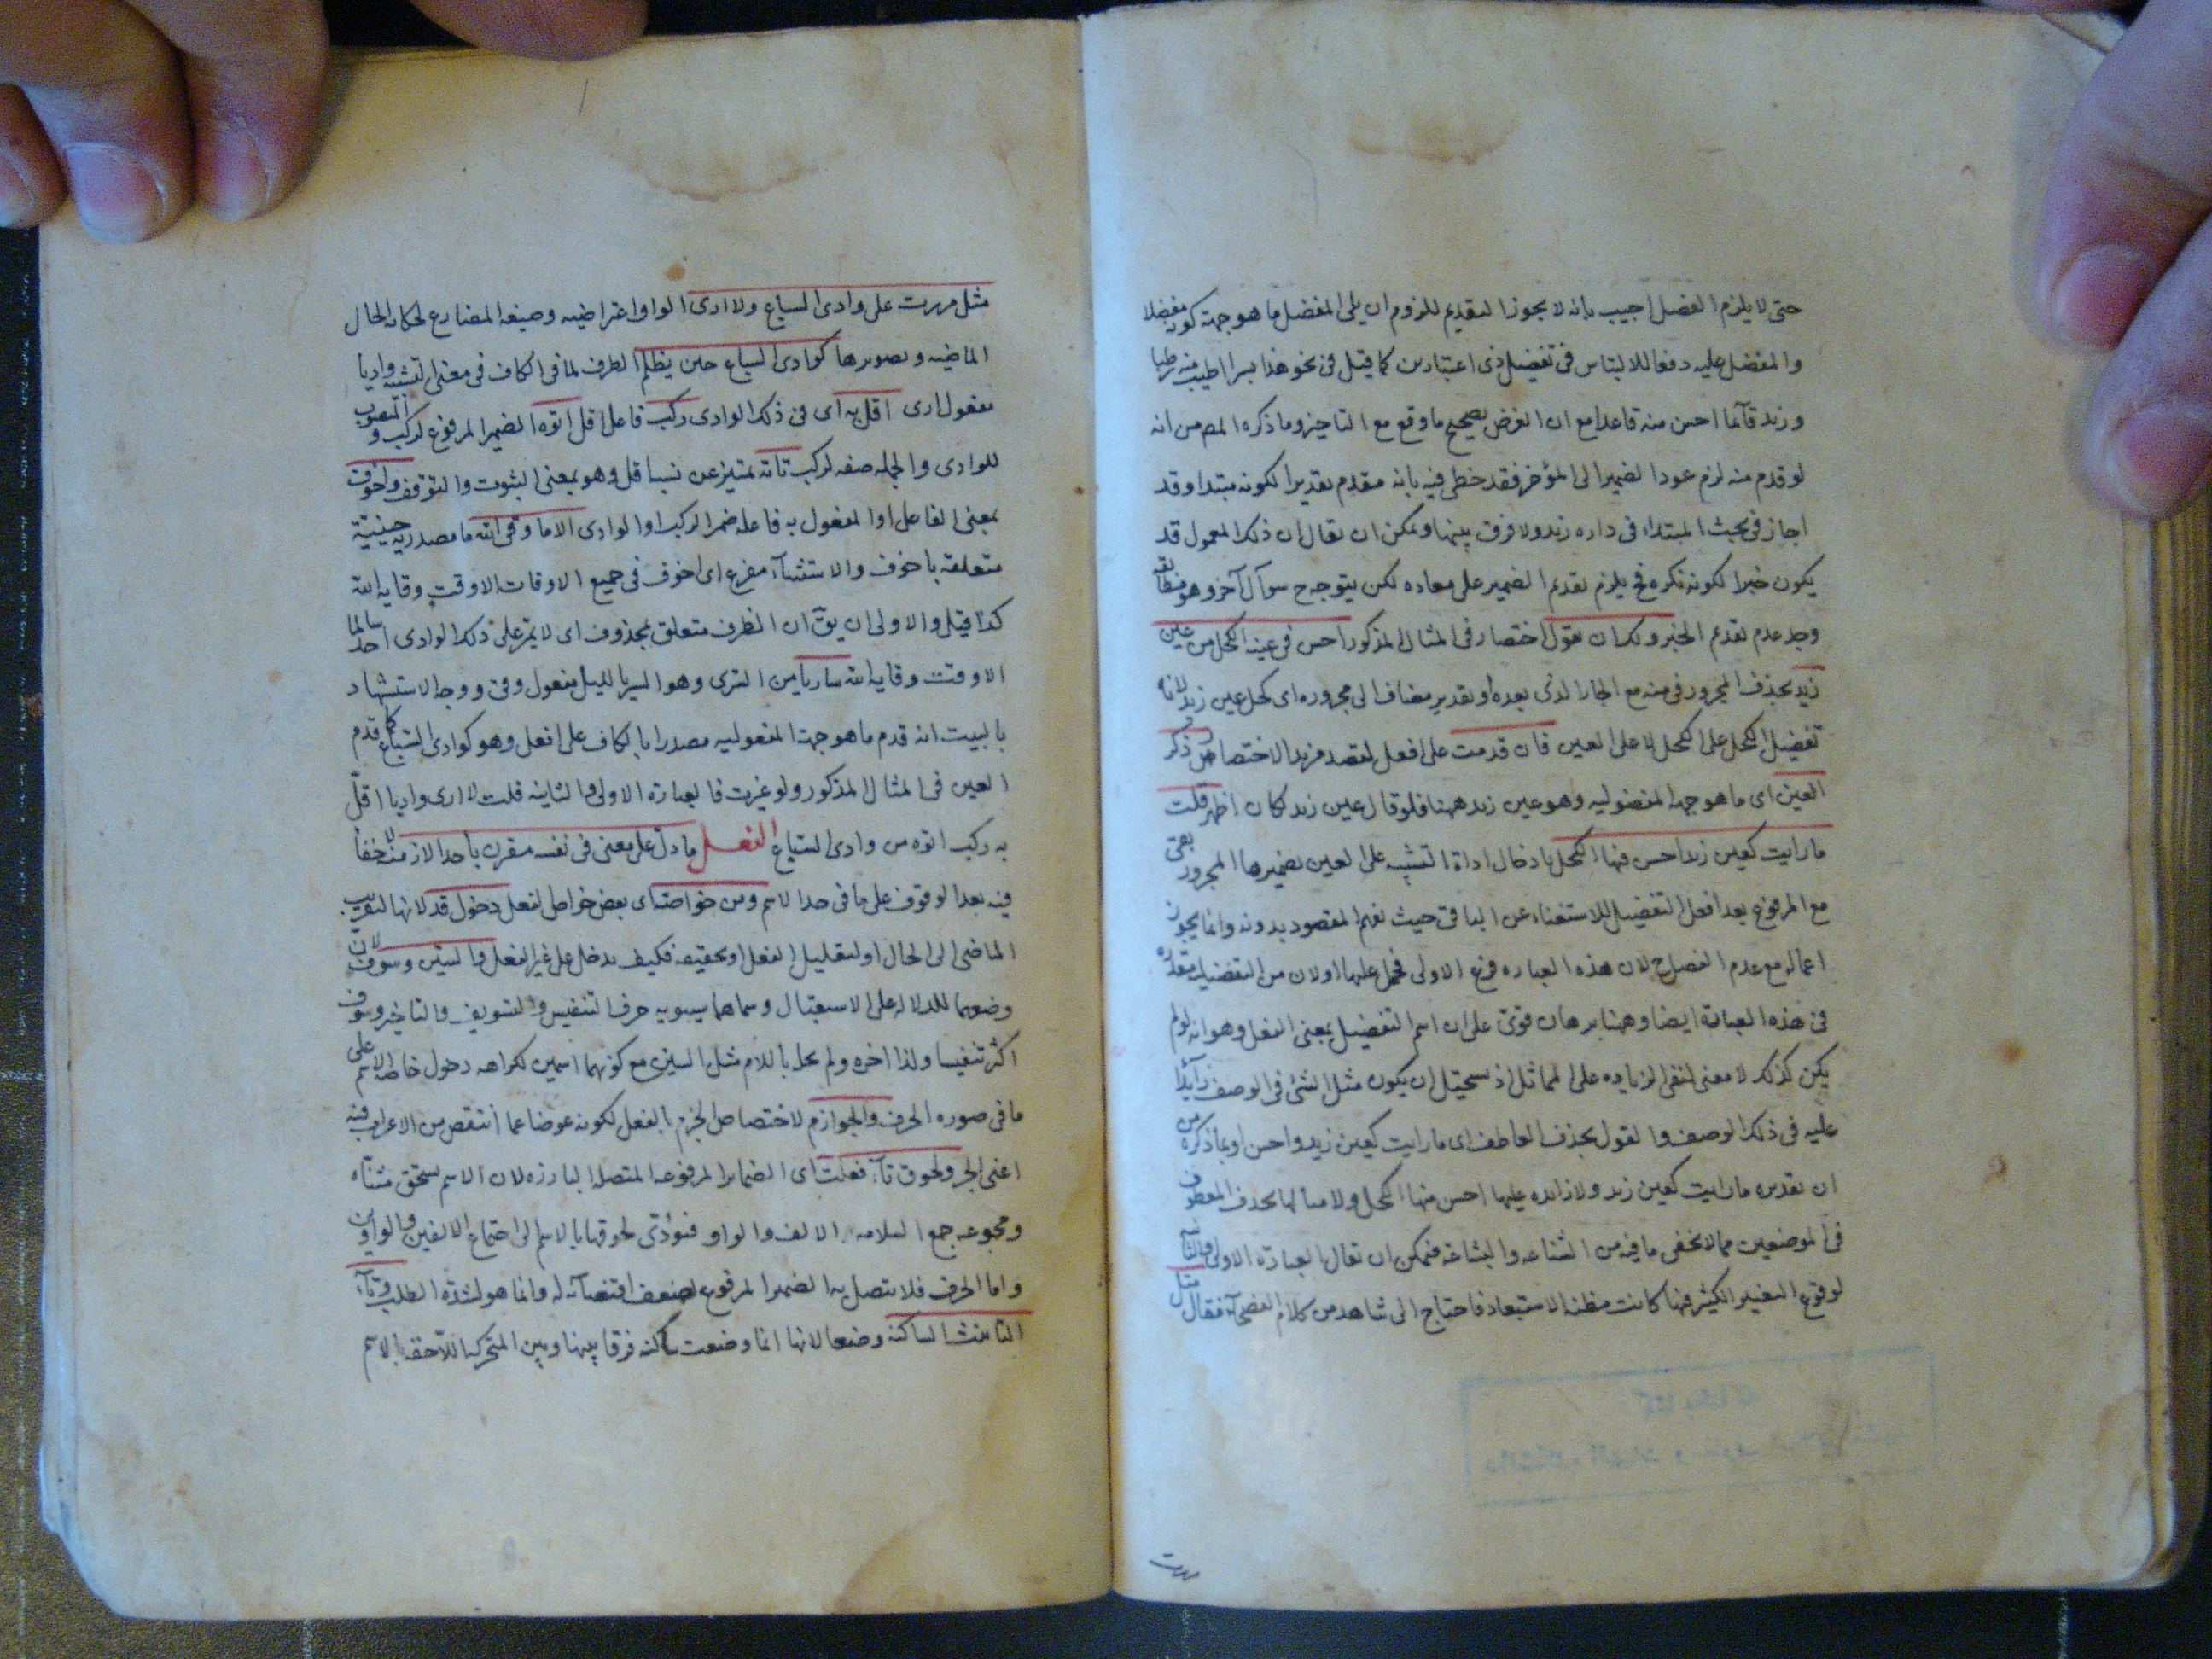 حتى لا يلزم الفصل اجيب بانه لا يجوز التقديم للزوم ان يلى المفضل ما هو جهة كونه مفضلا
والمفضل عليه دفعا للالتباس فى تفضيل ذى اعتبارين كما قيل فى نحو هذا بسرا اطيب منه رطبا
وزيد قائما احسن منه قاعدا مع ان الغرض تصحيح ما وقع مع التاخير وما ذكره المص من انه
لو قدم منه لزم عود الضمير الى المؤخر فقد خطى فيه بانه متقدم تقديرا لكونه مبتدا وقد
اجاز فى بحث المبتداء فى داره زيد ولا فرق بينهما ويمكن ان يقال ان ذلك المعمول قد
يكون خبرا لكونه نكره فح يلزم تقدم الضمير على معاده لكن يتوجه ح سوآل آخر وهو مطالبة
وجه عدم تقديم الخبر ولك ان تقول اختصار فى المثال المذكور احسن فى عينه الكحل من عين
زيد بحذف المجرور فى منه مع الجار الذى بعده او تقدير مضاف الى مجروره اى كحل عين زيد لانه
تفضيل الكحل على الكحل لا على العين فان قدمت على افعل لقصد مزيد الاختصاص ذكر
العين اى ما هو جهة المفضوليه وهو عين زيد ههنا فلو قال عين زيد لكان اظهر قلت
ما رايت كعين زيد احسن فيها الكحل بادخال اداة التشبيه على العين بضميرها المجرور بقى
مع المرفوع بعد افعل التفضيل للاستغناء عن الباقى حيث يفهم المقصود بدونه وانما يجوز
اعماله مع عدم الفصل ح لان هذه العباره فرع الاولى فحمل عليها او لان من التفضيلية مقدره
فى هذه العبارة ايضا وههنا برهان قوى على ان اسم التفضيل بمعنى الفعل وهو انه لو لم
يكن كذلك لا معنى لنفى الزياده على المماثل اذ يستحيل ان يكون مثل الشئ فى الوصف زآيدا
عليه فى ذلك الوصف والقول بحذف العاطف اى ما رايت كعين زيد واحسن او بما ذكره من
ان تقديره ما رايت كعين زيد ولا زائده عليها احسن منها الكحل ولا مماثلها بحذف المعطوف
فى الموضعين مما لا يخفى ما فيه من الشناعه والبشاعة فيمكن ان يقال العبارة الاولى
لوقوع التغيير الكثير فيها كانت مظنه الاستبعاد فاحتاج الى شاهد من كلام الفصحآء فقال مثل
مررت
مثل مررت على وادى السباع ولا ارى الواو اعتراضيه وصيغه المضارع لحكايه الحال
الماضيه وتصويرها كوادى السباع حين يظلم الظرف لما فى الكاف فى معنى التشبيه واديا
مفعول ارى اقل به اى فى ذلك الوادى ركب فاعل اقل اتوه الضمير المرفوع لركب والمنصوب
للوادى والجمله صفه لركب تاية تمييز عن نسبة اقل وهو بمعنى الثبوت والتوقف واخوف
بمعنى الفاعل او المفعول به فاعله ضمير الركب او الوادى الا ما وقى الله ما مصدريه حينيّة
متعلقه باخوف والاستثنآء مفرع اى اخوف فى جميع الاوقات الا وقت وقايه الله
كذا قيل والاولى ان يق ان الظرف متعلق بمحذوف اى لا يمر على ذلك الوادى احد سالما
الا وقت وقايه الله ساريا من السرى وهو السير بالليل مفعول وقى ووجه الاستشهاد
بالبيت انه قدم ما هو جهة المفعوليه مصدرا بالكاف على افعل وهو كوادى السباع كما قدم
العين فى المثال المذكور ولو غيرت فالعبارة الاولى والثانيه قلت لا ارى واديا اقلّ
به ركب اتوه من وادى السباع الفعل ما دل على معنى فى نفسه مقترن باحد الازمنه لا خفأ
فيه بعد الوقوف على ما فى حد الاسم ومن خواصه اى بعض خواص الفعل دخول قد لانها لتقريب
الماضى الى الحال او لتقليل الفعل او تحقيقه فكيف يدخل على غير الفعل والسين وسوف لان
وضعهما للدلاله على الاستقبال وسماهما سيبويه حرف التنفيس والتسويف والتاخير وسوف
اكثر تنفيسا ولذا اخره ولم يحل باللام مثل السين مع كونهما اسمين لكراهه دخول خاصة الاسم على
ما فى صوره الحرف والجوازم لاختصاص الجزم بالفعل لكونه عوضا عما انتقص من الاعراب فيه
اعنى الجر ولحوق تآء فعلت اى الضماير المرفوعه المتصله البارزه لان الاسم يستحق مثناه
ومجوعه جمع السلامه الالف والواو فيؤدى لحوقها بالاسم الى اجتماع الالفين والواوين
واما الحرف فلا يتصل به الضمير المرفوع لضعف اقتضآئه له وانما هو لشدة الطلب وتآء
التانيث الساكنه وضعا لانها انما وضعت ساكنه فرقا بينها وبين المتحركه اللاحقه بالاسم